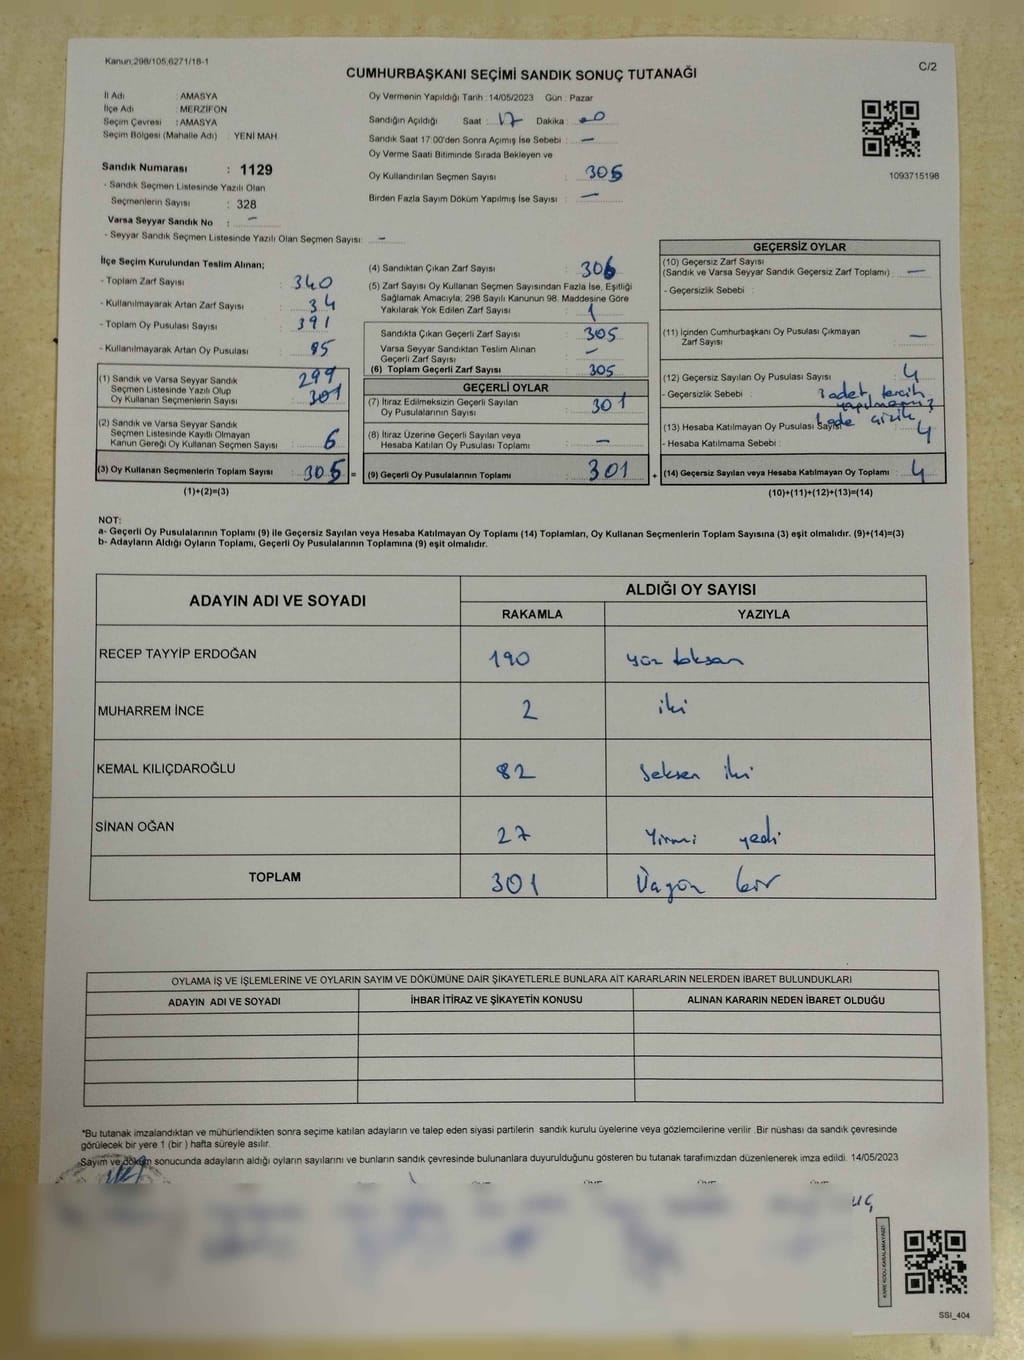 Kanun,298/105,6271/18-1
C/2
CUMHURBAŞKANI SEÇİMİ SANDIK SONUÇ TUTANAĞI
İl Adı : AMASYA
İlçe Adı : MERZİFON
Seçim Çevresi : AMASYA
Seçim Bölgesi (Mahalle Adı) : YENİ MAH
Sandık Numarası : 1129
- Sandık Seçmen Listesinde Yazılı Olan
Seçmenlerin Sayısı : 328
Varsa Seyyar Sandık No : -
- Seyyar Sandık Seçmen Listesinde Yazılı Olan Seçmen Sayısı : -
Oy Vermenin Yapıldığı Tarih : 14/05/2023 Gün : Pazar
Sandığın Açıldığı Saat : 17 Dakika : 00
Sandık Saat 17:00'den Sonra Açımış İse Sebebi : -
Oy Verme Saati Bitiminde Sırada Bekleyen ve
Oy Kullandırılan Seçmen Sayısı : 305
Birden Fazla Sayım Döküm Yapılmış İse Sayısı : -
1093715198
İlçe Seçim Kurulundan Teslim Alınan;
- Toplam Zarf Sayısı : 340
- Kullanılmayarak Artan Zarf Sayısı : 34
- Toplam Oy Pusulası Sayısı : 391
- Kullanılmayarak Artan Oy Pusulası : 85
(1) Sandık ve Varsa Seyyar Sandık
Seçmen Listesinde Yazılı Olup
Oy Kullanan Seçmenlerin Sayısı : 299 301
(2) Sandık ve Varsa Seyyar Sandık
Seçmen Listesinde Kayıtlı Olmayan
Kanun Gereği Oy Kullanan Seçmen Sayısı : 6
(3) Oy Kullanan Seçmenlerin Toplam Sayısı : 305 =
(1)+(2)=(3)
(4) Sandıktan Çıkan Zarf Sayısı : 306
(5) Zarf Sayısı Oy Kullanan Seçmen Sayısından Fazla İse, Eşitliği
Sağlamak Amacıyla; 298 Sayılı Kanunun 98. Maddesine Göre
Yakılarak Yok Edilen Zarf Sayısı : 1
Sandıkta Çıkan Geçerli Zarf Sayısı : 305
Varsa Seyyar Sandıktan Teslim Alınan
Geçerli Zarf Sayısı : -
(6) Toplam Geçerli Zarf Sayısı : 305
GEÇERLİ OYLAR
(7) İtiraz Edilmeksizin Geçerli Sayılan
Oy Pusulalarının Sayısı : 301
(8) İtiraz Üzerine Geçerli Sayılan veya
Hesaba Katılan Oy Pusulası Toplamı : -
(9) Geçerli Oy Pusulalarının Toplamı : 301 +
GEÇERSİZ OYLAR
(10) Geçersiz Zarf Sayısı
(Sandık ve Varsa Seyyar Sandık Geçersiz Zarf Toplamı) : -
- Geçersizlik Sebebi :
(11) İçinden Cumhurbaşkanı Oy Pusulası Çıkmayan
Zarf Sayısı : -
(12) Geçersiz Sayılan Oy Pusulası Sayısı : 4
- Geçersizlik Sebebi : 3 adet tercih
yapılmamış
(13) Hesaba Katılmayan Oy Pusulası Sayısı : 4
- Hesaba Katılmama Sebebi :
(14) Geçersiz Sayılan veya Hesaba Katılmayan Oy Toplamı : 4
(10)+(11)+(12)+(13)=(14)
NOT:
a- Geçerli Oy Pusulalarının Toplamı (9) ile Geçersiz Sayılan veya Hesaba Katılmayan Oy Toplamı (14) Toplamları, Oy Kullanan Seçmenlerin Toplam Sayısına (3) eşit olmalıdır. (9)+(14)=(3)
b- Adayların Aldığı Oyların Toplamı, Geçerli Oy Pusulalarının Toplamına (9) eşit olmalıdır.
ADAYIN ADI VE SOYADI
ALDIĞI OY SAYISI
RAKAMLA YAZIYLA
RECEP TAYYİP ERDOĞAN 190 yüz doksan
MUHARREM İNCE 2 iki
KEMAL KILIÇDAROĞLU 82 Seksen iki
SİNAN OĞAN 27 Yirmi yedi
TOPLAM 301 Üçyüz bir
OYLAMA İŞ VE İŞLEMLERİNE VE OYLARIN SAYIM VE DÖKÜMÜNE DAİR ŞİKAYETLERLE BUNLARA AİT KARARLARIN NELERDEN İBARET BULUNDUKLARI
ADAYIN ADI VE SOYADI İHBAR İTİRAZ VE ŞİKAYETİN KONUSU ALINAN KARARIN NEDEN İBARET OLDUĞU
*Bu tutanak imzalandıktan ve mühürlendikten sonra seçime katılan adayların ve talep eden siyasi partilerin sandık kurulu üyelerine veya gözlemcilerine verilir. Bir nüshası da sandık çevresinde
görülecek bir yere 1 (bir) hafta süreyle asılır.
Sayım ve döküm sonucunda adayların aldığı oyların sayılarını ve bunların sandık çevresinde bulunanlara duyurulduğunu gösteren bu tutanak tarafımızdan düzenlenerek imza edildi. 14/05/2023
KARE KODU KARALAMAYINIZ!
SSI_404